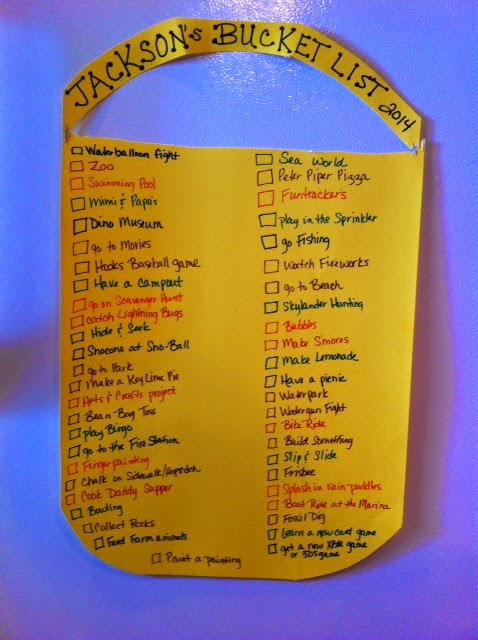 JACKSON's BUCKET LIST 2014
Waterballoon fight
Zoo
Swimming Pool
Mimi & Papa's
Dino Museum
go to Movies
Hooks Baseball game
Have a Campout
go on Scavenger Hunt
catch Lightning Bugs
Hide & Seek
Snocone at Sno-Ball
go to Park
Make a Key Lime Pie
Arts & Crafts project
Bean Bag Toss
play Bingo
go to the Fire Station
Fingerpainting
Chalk on Sidewalk/Hopscotch
Cook Daddy Supper
Bowling
Collect Rocks
Feed Farm animals
Paint a painting
Sea World
Peter Piper Pizza
Funtrackers
play in the Sprinkler
go Fishing
Watch Fireworks
go to Beach
Skylander Hunting
Bubbles
Make S'mores
Make Lemonade
Have a picnic
Waterpark
Watergun Fight
Bike Ride
Build Something
Slip & Slide
Frisbee
Splash in rain puddles
Boat Ride at the Marina
Fossil Dig
Learn a new card game
get a new XBox game
or 3DS game